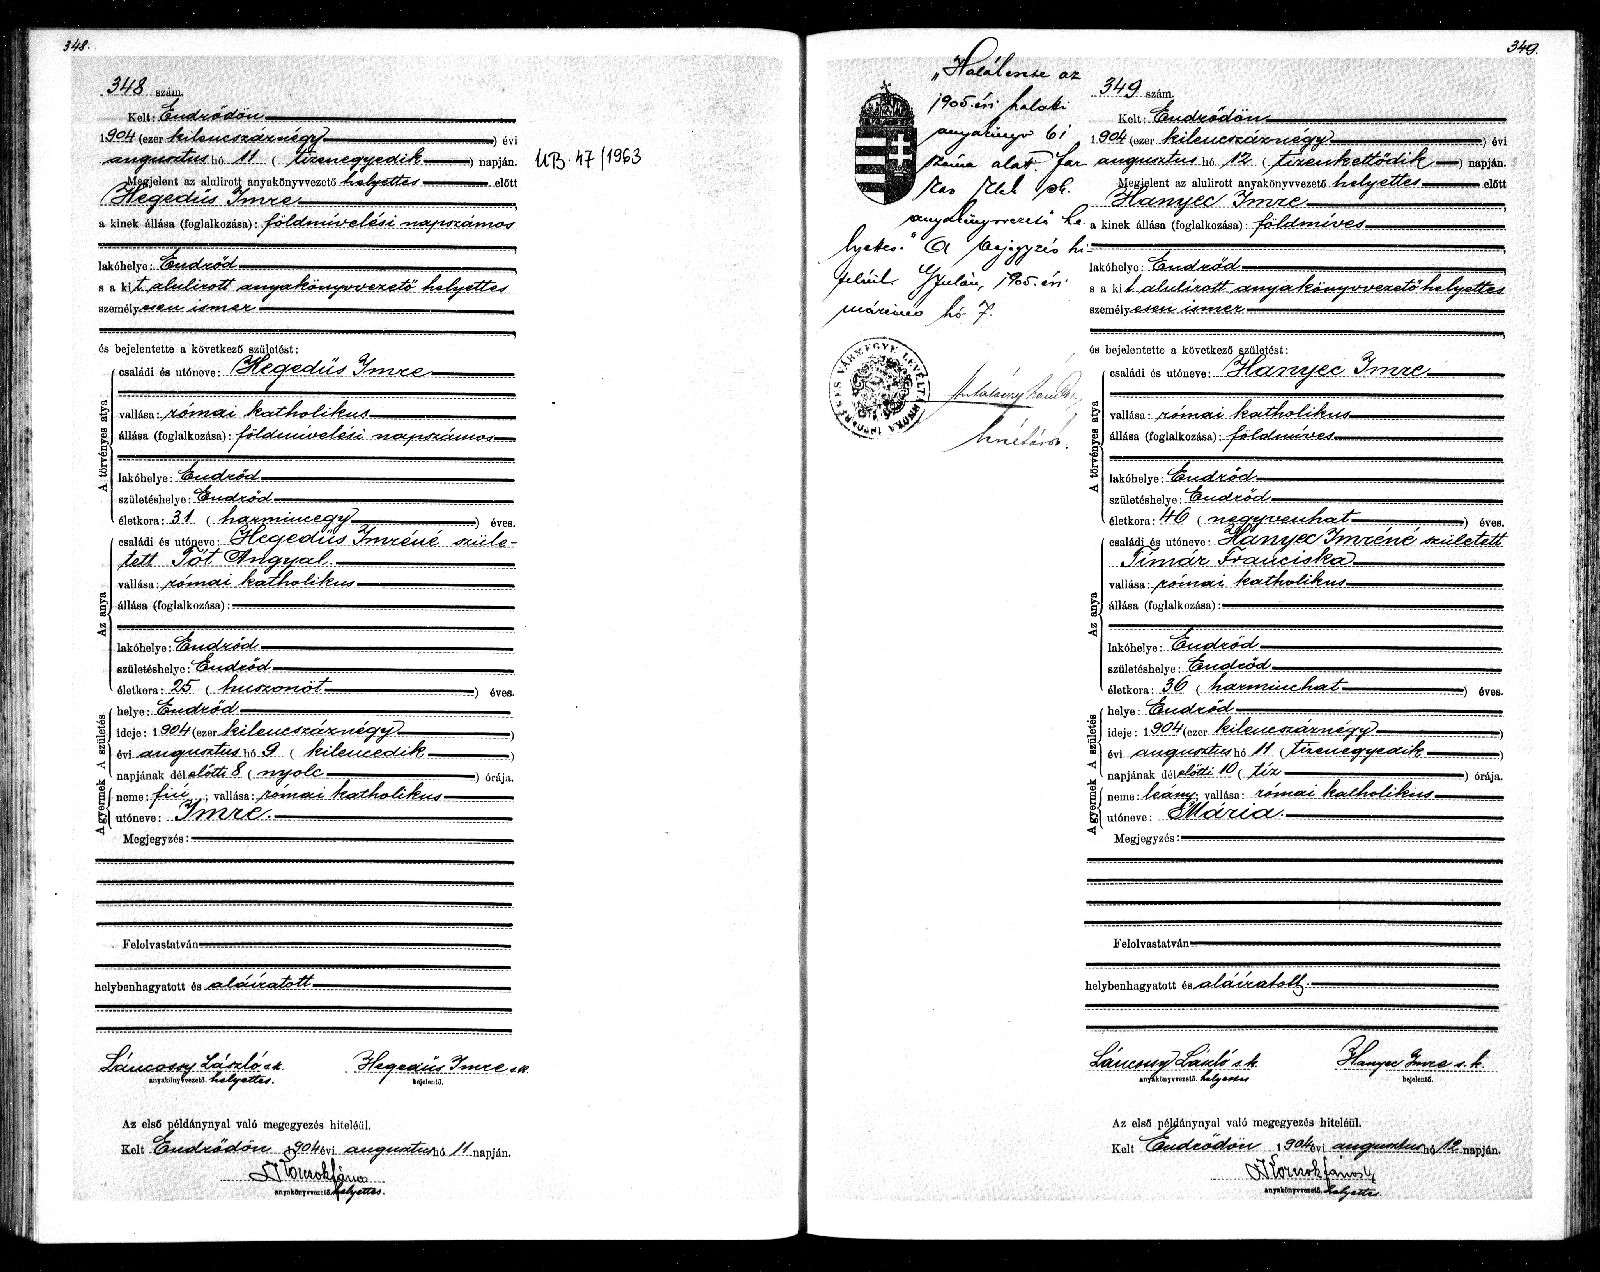 348.
348 szám.
Kelt: Endrődön
1904 (ezer kilencszáznégy) évi
augusztus hó 11 (tizenegyedik) napján.
Megjelent az alulirott anyakönyvvezető helyettes előtt
Hegedüs Imre
a kinek állása (foglalkozása): földmivelési napszámos
lakóhelye: Endrőd
s a kit alulirott anyakönyvvezető helyettes
személyesen ismer
és bejelentette a következő születést:
A törvényes atya
családi és utóneve: Hegedüs Imre
vallása: római katholikus
állása (foglalkozása): földmivelési napszámos
lakóhelye: Endrőd
születéshelye: Endrőd
életkora: 31 (harmincegy) éves.
Az anya
családi és utóneve: Hegedüs Imréné szüle-
tett Tót Angyal
vallása: római katholikus
állása (foglalkozása):
lakóhelye: Endrőd
születéshelye: Endrőd
életkora: 25 (huszonöt) éves.
A születés
helye: Endrőd
ideje: 1904 (ezer kilencszáznégy)
évi augusztus hó 9 (kilencedik)
napjának délelőtti 8 (nyolc) órája.
A gyermek
neme: fiú; vallása: római katholikus
utóneve: Imre.
Megjegyzés:
Felolvastatván
helybenhagyatott és aláíratott
Láncossy László s.k. Hegedüs Imre s.k.
anyakönyvvezető helyettes. bejelentő.
Az első példánynyal való megegyezés hiteléül.
Kelt Endrődön 1904 évi augusztus hó 11 napján.
anyakönyvvezető helyettes.
UB. 47/1963
349.
"Halálesete az
1905. évi halotti
anyakönyv 61
száma alatt.
anyakönyvvezető he-
lyettes." A bejegyzés hi-
teléül. Gyulán, 1905. évi
március hó 7.
349 szám.
Kelt: Endrődön
1904 (ezer kilencszáznégy) évi
augusztus hó 12 (tizenkettődik) napján.
Megjelent az alulirott anyakönyvvezető helyettes előtt
Hanyec Imre
a kinek állása (foglalkozása): földmives
lakóhelye: Endrőd
s a kit alulirott anyakönyvvezető helyettes
személyesen ismer
és bejelentette a következő születést:
A törvényes atya
családi és utóneve: Hanyec Imre
vallása: római katholikus
állása (foglalkozása): földmives
lakóhelye: Endrőd
születéshelye: Endrőd
életkora: 46 (negyvenhat) éves.
Az anya
családi és utóneve: Hanyec Imréné született
Timár Franciska
vallása: római katholikus
állása (foglalkozása):
lakóhelye: Endrőd
születéshelye: Endrőd
életkora: 36 (harminchat) éves.
A születés
helye: Endrőd
ideje: 1904 (ezer kilencszáznégy)
évi augusztus hó 11 (tizenegyedik)
napjának délelőtti 10 (tíz) órája.
A gyermek
neme: leány; vallása: római katholikus
utóneve: Mária.
Megjegyzés:
Felolvastatván
helybenhagyatott és aláíratott.
Láncossy László s.k. Hanyec Imre s.k.
anyakönyvvezető. helyettes bejelentő.
Az első példánynyal való megegyezés hiteléül.
Kelt Endrődön 1904 évi augusztus hó 12 napján.
anyakönyvvezető helyettes.